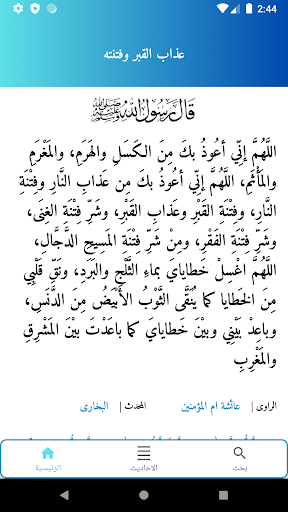 2:44
عذاب القبر وفتنته
قال رسول الله ﷺ
اللَّهُمَّ إنِّي أعُوذُ بكَ مِنَ الكَسَلِ والهَرَمِ، والمَغْرَمِ
والمَأْثَمِ، اللَّهُمَّ إنِّي أعُوذُ بكَ مِن عَذابِ النَّارِ وفِتْنَةِ
النَّارِ، وفِتْنَةِ القَبْرِ وعَذابِ القَبْرِ، وشَرِّ فِتْنَةِ الغِنَى،
وشَرِّ فِتْنَةِ الفَقْرِ، ومِنْ شَرِّ فِتْنَةِ المَسِيحِ الدَّجَّالِ،
اللَّهُمَّ اغْسِلْ خَطايايَ بماءِ الثَّلْجِ والبَرَدِ، ونَقِّ قَلْبِي
مِنَ الخَطايا كما يُنَقَّى الثَّوْبُ الأبْيَضُ مِنَ الدَّنَسِ،
وباعِدْ بَيْنِي وبيْنَ خَطايايَ كما باعَدْتَ بيْنَ المَشْرِقِ
والمَغْرِبِ
الراوى | عائشة ام المؤمنين المحدث | البخارى
بحث الاحاديث الرئيسية